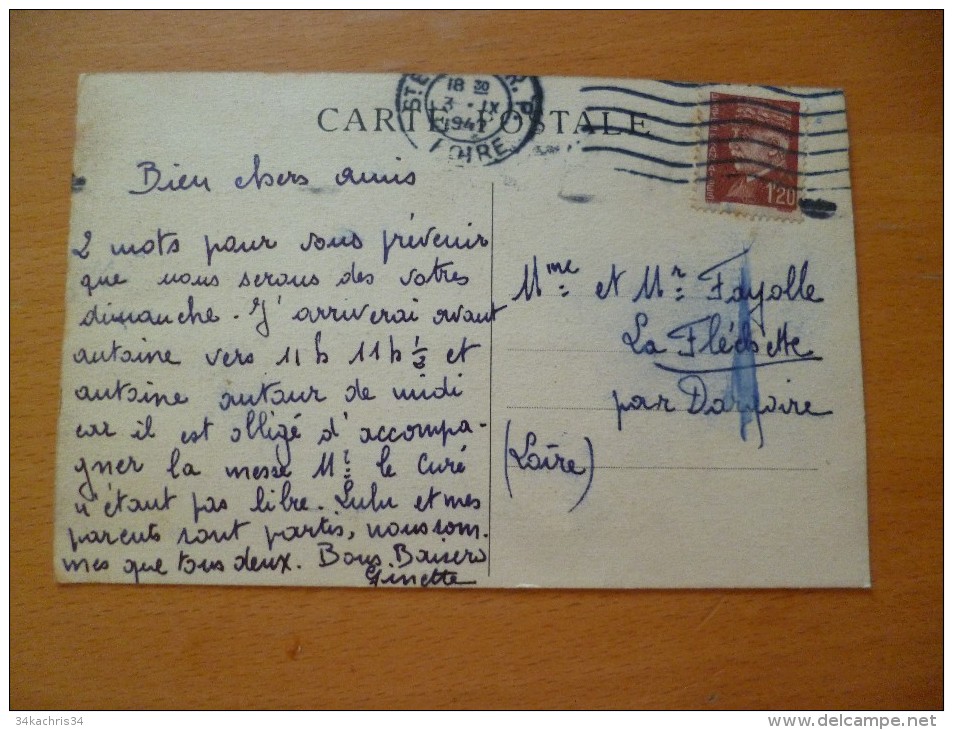 CARTE POSTALE
18 30
3 · IX
LOIRE
1'20
Bien chers amis
2 mots pour vous prévenir
que nous serons des votres
dimanche. J'arriverai avant
antoine vers 11 h 11 h ½ et
antoine autour de midi
car il est obligé d'accompa-
gner la messe Mr. le Curé
n'étant pas libre. Lulu et mes
parents sont partis, nous som.
mes que tous deux. Bons Baisers
Ginette
Mme et Mr Fayolle
La Fléchette
par Dargoire
(Loire)
34kachris34
www.delcampe.net